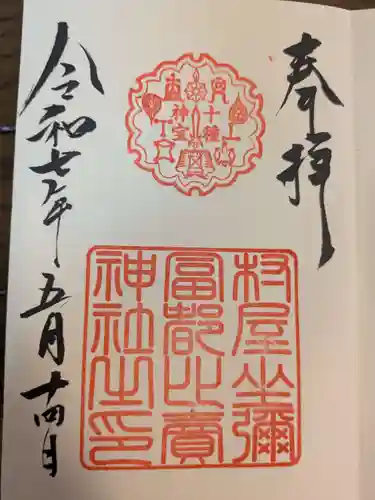 奉拝
十種
神宝
村屋坐彌
冨都比賣
神社之印
令和七年 五月十四日